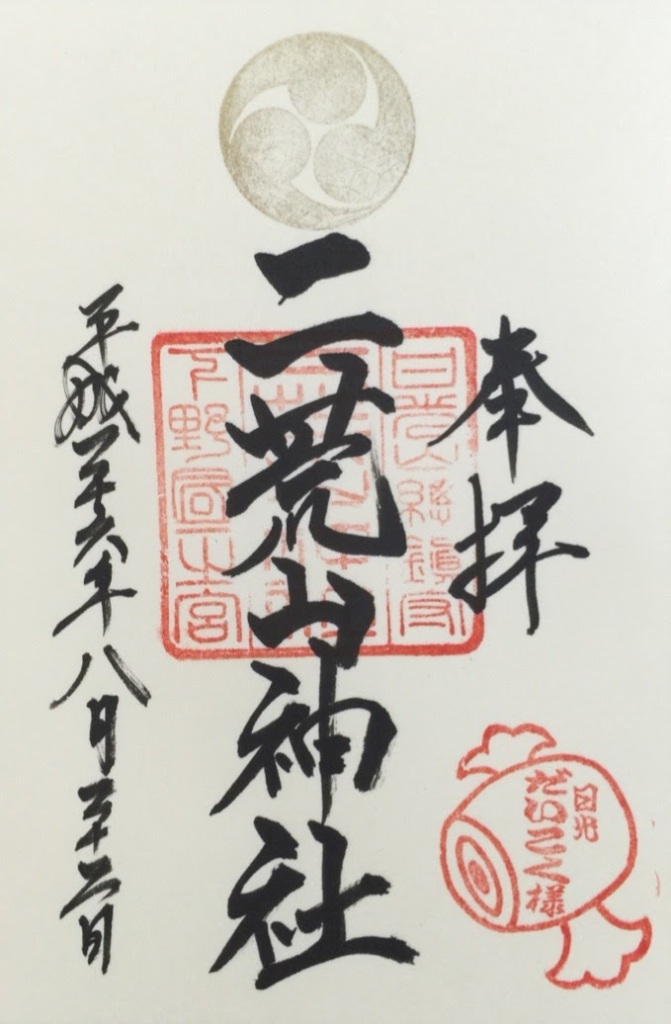 奉拝
日光山総鎮守
二荒山神社
下野国一之宮
平成二十六年八月二十二日
日光
だいこく様